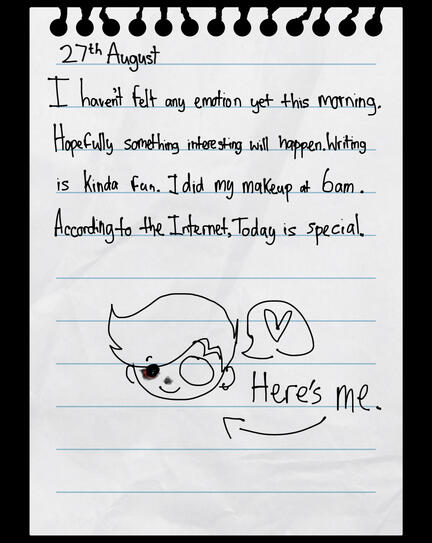 27th August
I haven't felt any emotion yet this morning.
Hopefully something interesting will happen. Writing
is kinda fun. I did my makeup at 6am.
According to the Internet, Today is special.
Here's me.